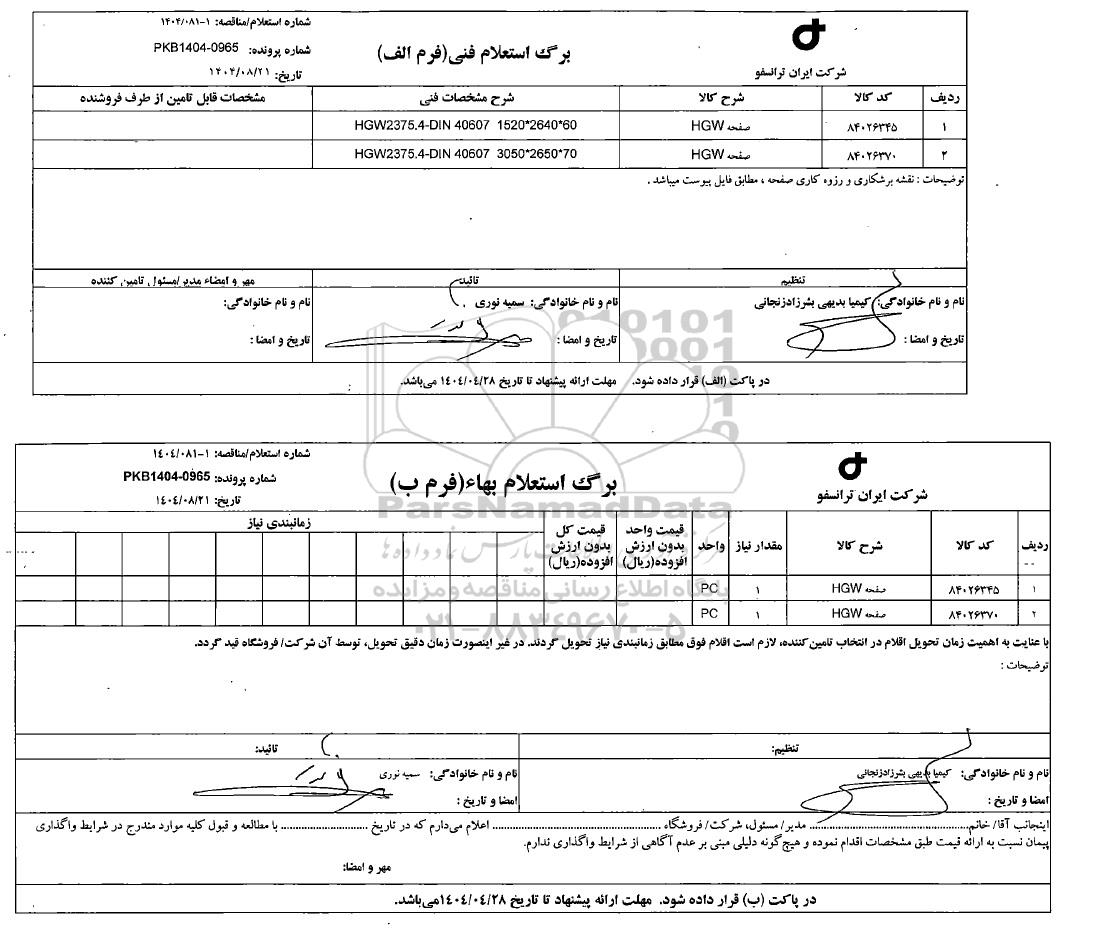 شماره استعلام/مناقصه: ۱-۱۴۰۴/۰۸۱
شماره پرونده: PKB1404-0965
تاریخ: ۱۴۰۴/۰۸/۲۱
برگ استعلام فنی(فرم الف)
شرکت ایران ترانسفو
ردیف کد کالا شرح کالا شرح مشخصات فنی مشخصات قابل تامین از طرف فروشنده
۱ ۸۴۰۲۶۳۴۵ صفحه HGW HGW2375.4-DIN 40607 1520*2640*60
۲ ۸۴۰۲۶۳۷۰ صفحه HGW HGW2375.4-DIN 40607 3050*2650*70
توضیحات : نقشه برشکاری و رزوه کاری صفحه ، مطابق فایل پیوست میباشد .
تنظیم تائید مهر و امضاء مدیر/مسئول تامین کننده
نام و نام خانوادگی: کیمیا بدیهی بشرزادزنجانی نام و نام خانوادگی: سمیه نوری نام و نام خانوادگی:
تاریخ و امضا : تاریخ و امضا : تاریخ و امضا :
در پاکت (الف) قرار داده شود. مهلت ارائه پیشنهاد تا تاریخ ۱۴۰۴/۰۴/۲۸ می‌باشد.
شماره استعلام/مناقصه: ۱-۱۴۰۴/۰۸۱
شماره پرونده: PKB1404-0965
تاریخ: ۱۴۰۴/۰۸/۲۱
برگ استعلام بهاء(فرم ب)
شرکت ایران ترانسفو
ParsNamadData
ردیف کد کالا شرح کالا مقدار نیاز واحد قیمت واحد بدون ارزش افزوده(ریال) قیمت کل بدون ارزش افزوده(ریال) زمانبندی نیاز
۱ ۸۴۰۲۶۳۴۵ صفحه HGW ۱ PC
پایگاه اطلاع رسانی مناقصه و مزایده
۲ ۸۴۰۲۶۳۷۰ صفحه HGW ۱ PC
۰۲۱-۸۸۳۴۹۶۷۰-۵
با عنایت به اهمیت زمان تحویل اقلام در انتخاب تامین‌کننده، لازم است اقلام فوق مطابق زمانبندی نیاز تحویل گردند. در غیر اینصورت زمان دقیق تحویل، توسط آن شرکت/ فروشگاه قید گردد.
توضیحات :
تنظیم: تائید:
نام و نام خانوادگی: کیمیا بدیهی بشرزادزنجانی نام و نام خانوادگی: سمیه نوری
امضا و تاریخ : امضا و تاریخ :
اینجانب آقا/ خانم........................ مدیر/ مسئول، شرکت/ فروشگاه ........................ اعلام می‌دارم که در تاریخ ........................ با مطالعه و قبول کلیه موارد مندرج در شرایط واگذاری
پیمان نسبت به ارائه قیمت طبق مشخصات اقدام نموده و هیچ‌گونه دلیلی مبنی بر عدم آگاهی از شرایط واگذاری ندارم.
مهر و امضا:
در پاکت (ب) قرار داده شود. مهلت ارائه پیشنهاد تا تاریخ ۱۴۰۴/۰۴/۲۸می‌باشد.